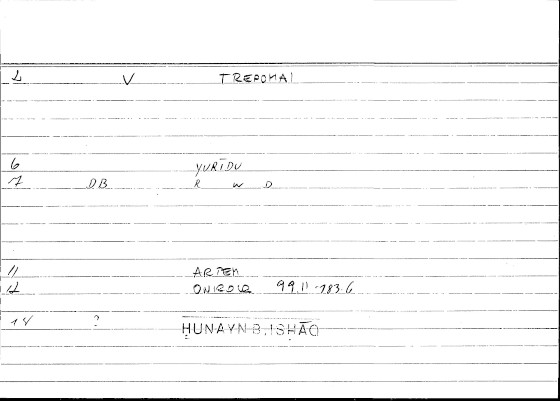 1 V TREPOMAI
6 YURĪDU
7 DB R W D
11 ARTEM
12 ONIROCR 99.11-183.6
14 ? ḤUNAYN B. ISḤĀQ